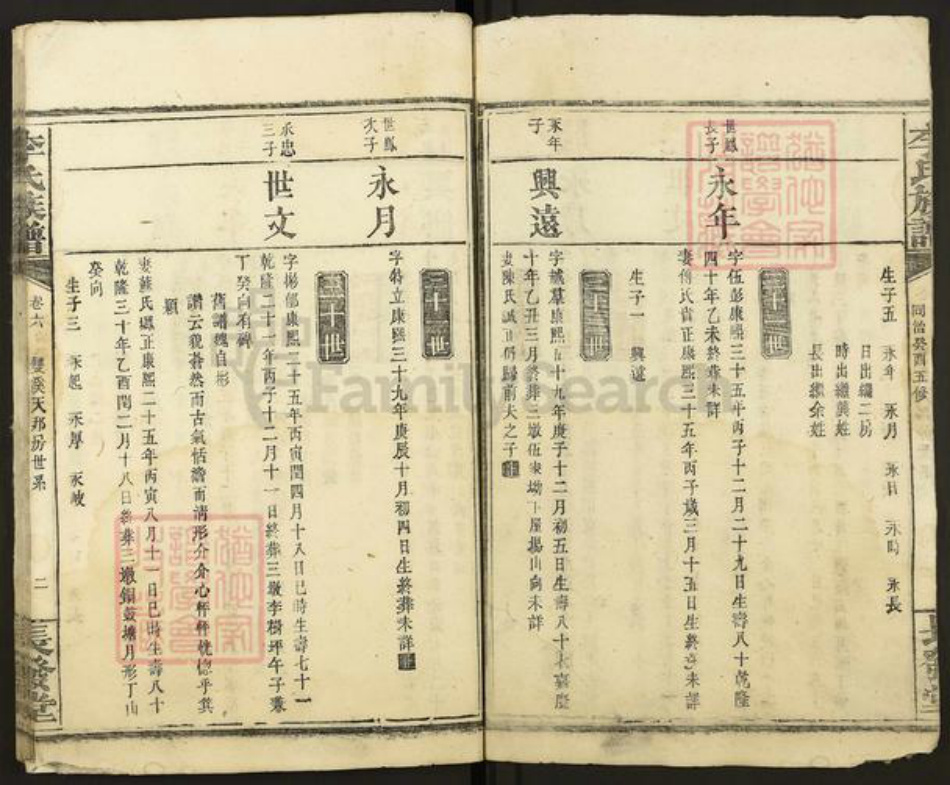 李氏族譜
同治癸酉五修
生子五 永年 永月 永日 永時 永長
日出繼二房
時出繼龔姓
長出繼余姓
三十二世
世鳳長子
永年
字伍彭康熙三十五年丙子十二月二十九日生壽八十乾隆
四十年乙未終葬未詳
妻傅氏貴正康熙三十五年丙子歲三月十五日生終葬未詳
生子一 興遠
三十三世
永年子
興遠
字誠羣康熙五十九年庚子十二月初五日生壽八十六嘉慶
十年乙丑三月終葬三墩伍家坳下屋楊山向未詳
妻陳氏誠正歸前夫之子
三十二世
世鳳次子
永月
字特立康熙三十九年庚辰十月初四日生終葬未詳
三十一世
承忠三子
世文
字楊郁康熙二十五年丙寅閏四月十八日巳時生壽七十一
乾隆二十一年丙子十二月十一日終葬三墩李樹坪午子兼
丁癸向有碑
舊譜魏自彤
讚云貌蒼然而古氣恬澹而清形介介心秤秤恍德乎箕
穎
妻龔氏 正康熙二十五年丙寅八月十一日巳時生壽八十
乾隆三十年乙酉閏二月十八日終葬三墩銅鼓壙月形丁山
癸向
生子三 永熙 永厚 永峻
李氏族譜
卷六 雙溪天邦房世系 二
FamilySearch